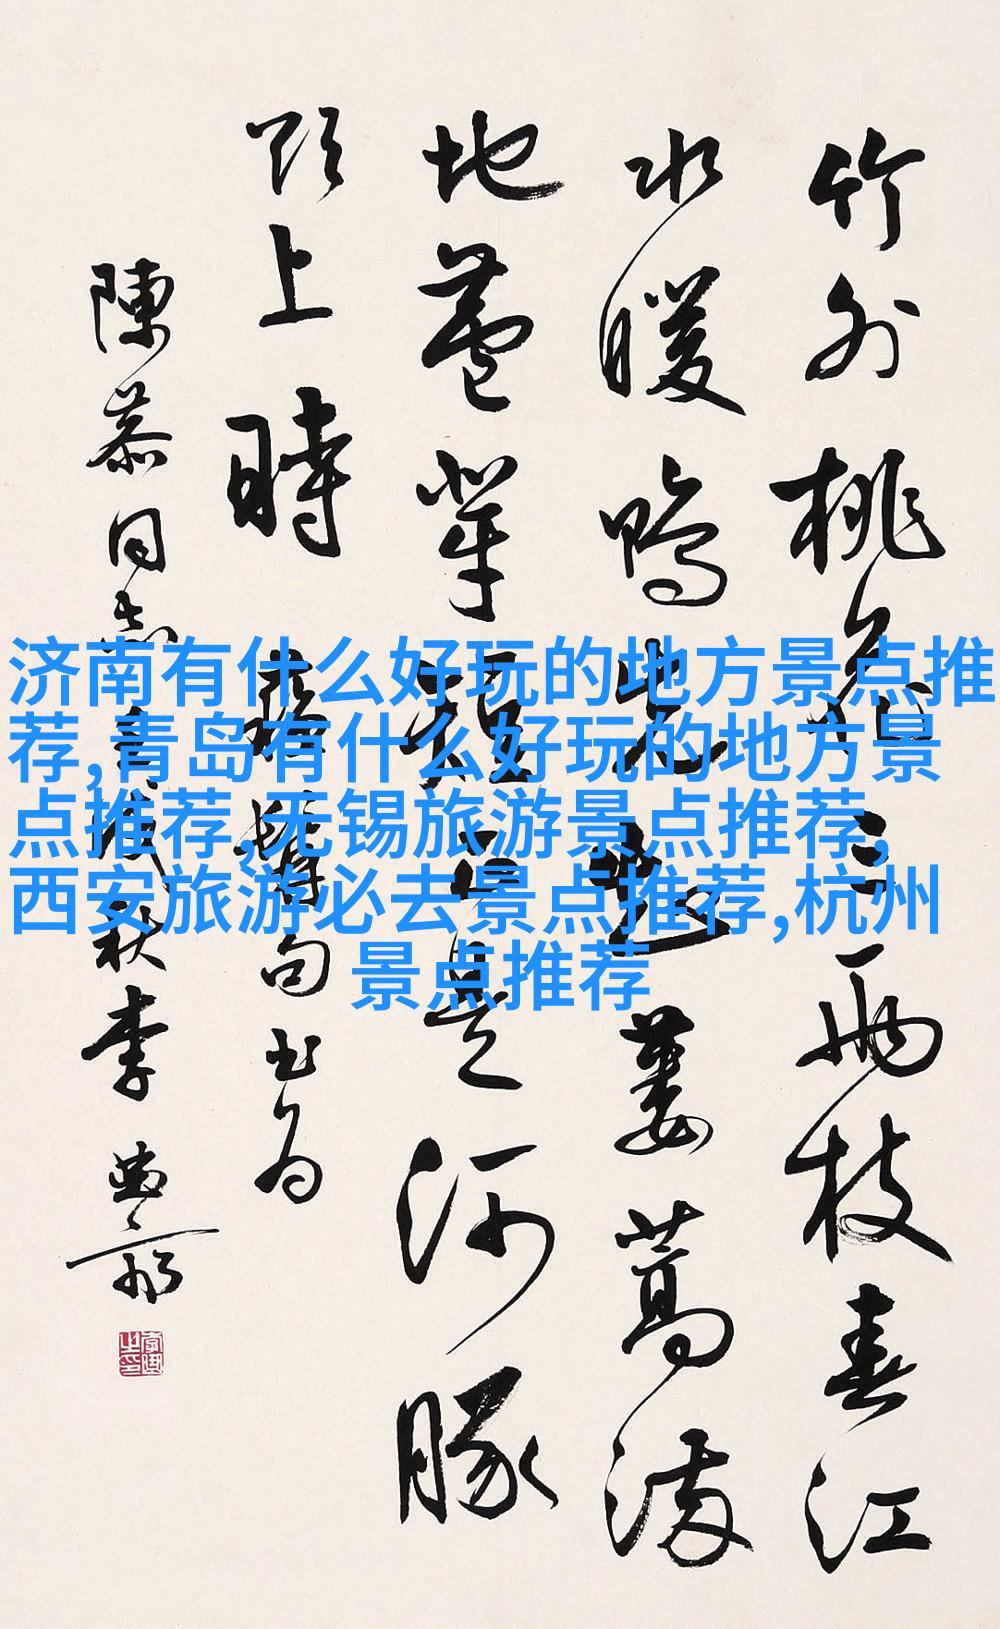 竹外桃花三兩枝春江
水暖鴨先知蔞蒿滿
地蘆芽短正是河豚
欲上時 蘇 句書為
陳 同志 秋李
济南有什么好玩的地方景点推
荐,青岛有什么好玩的地方景
点推荐,无锡旅游景点推荐,
西安旅游必去景点推荐,杭州
景点推荐